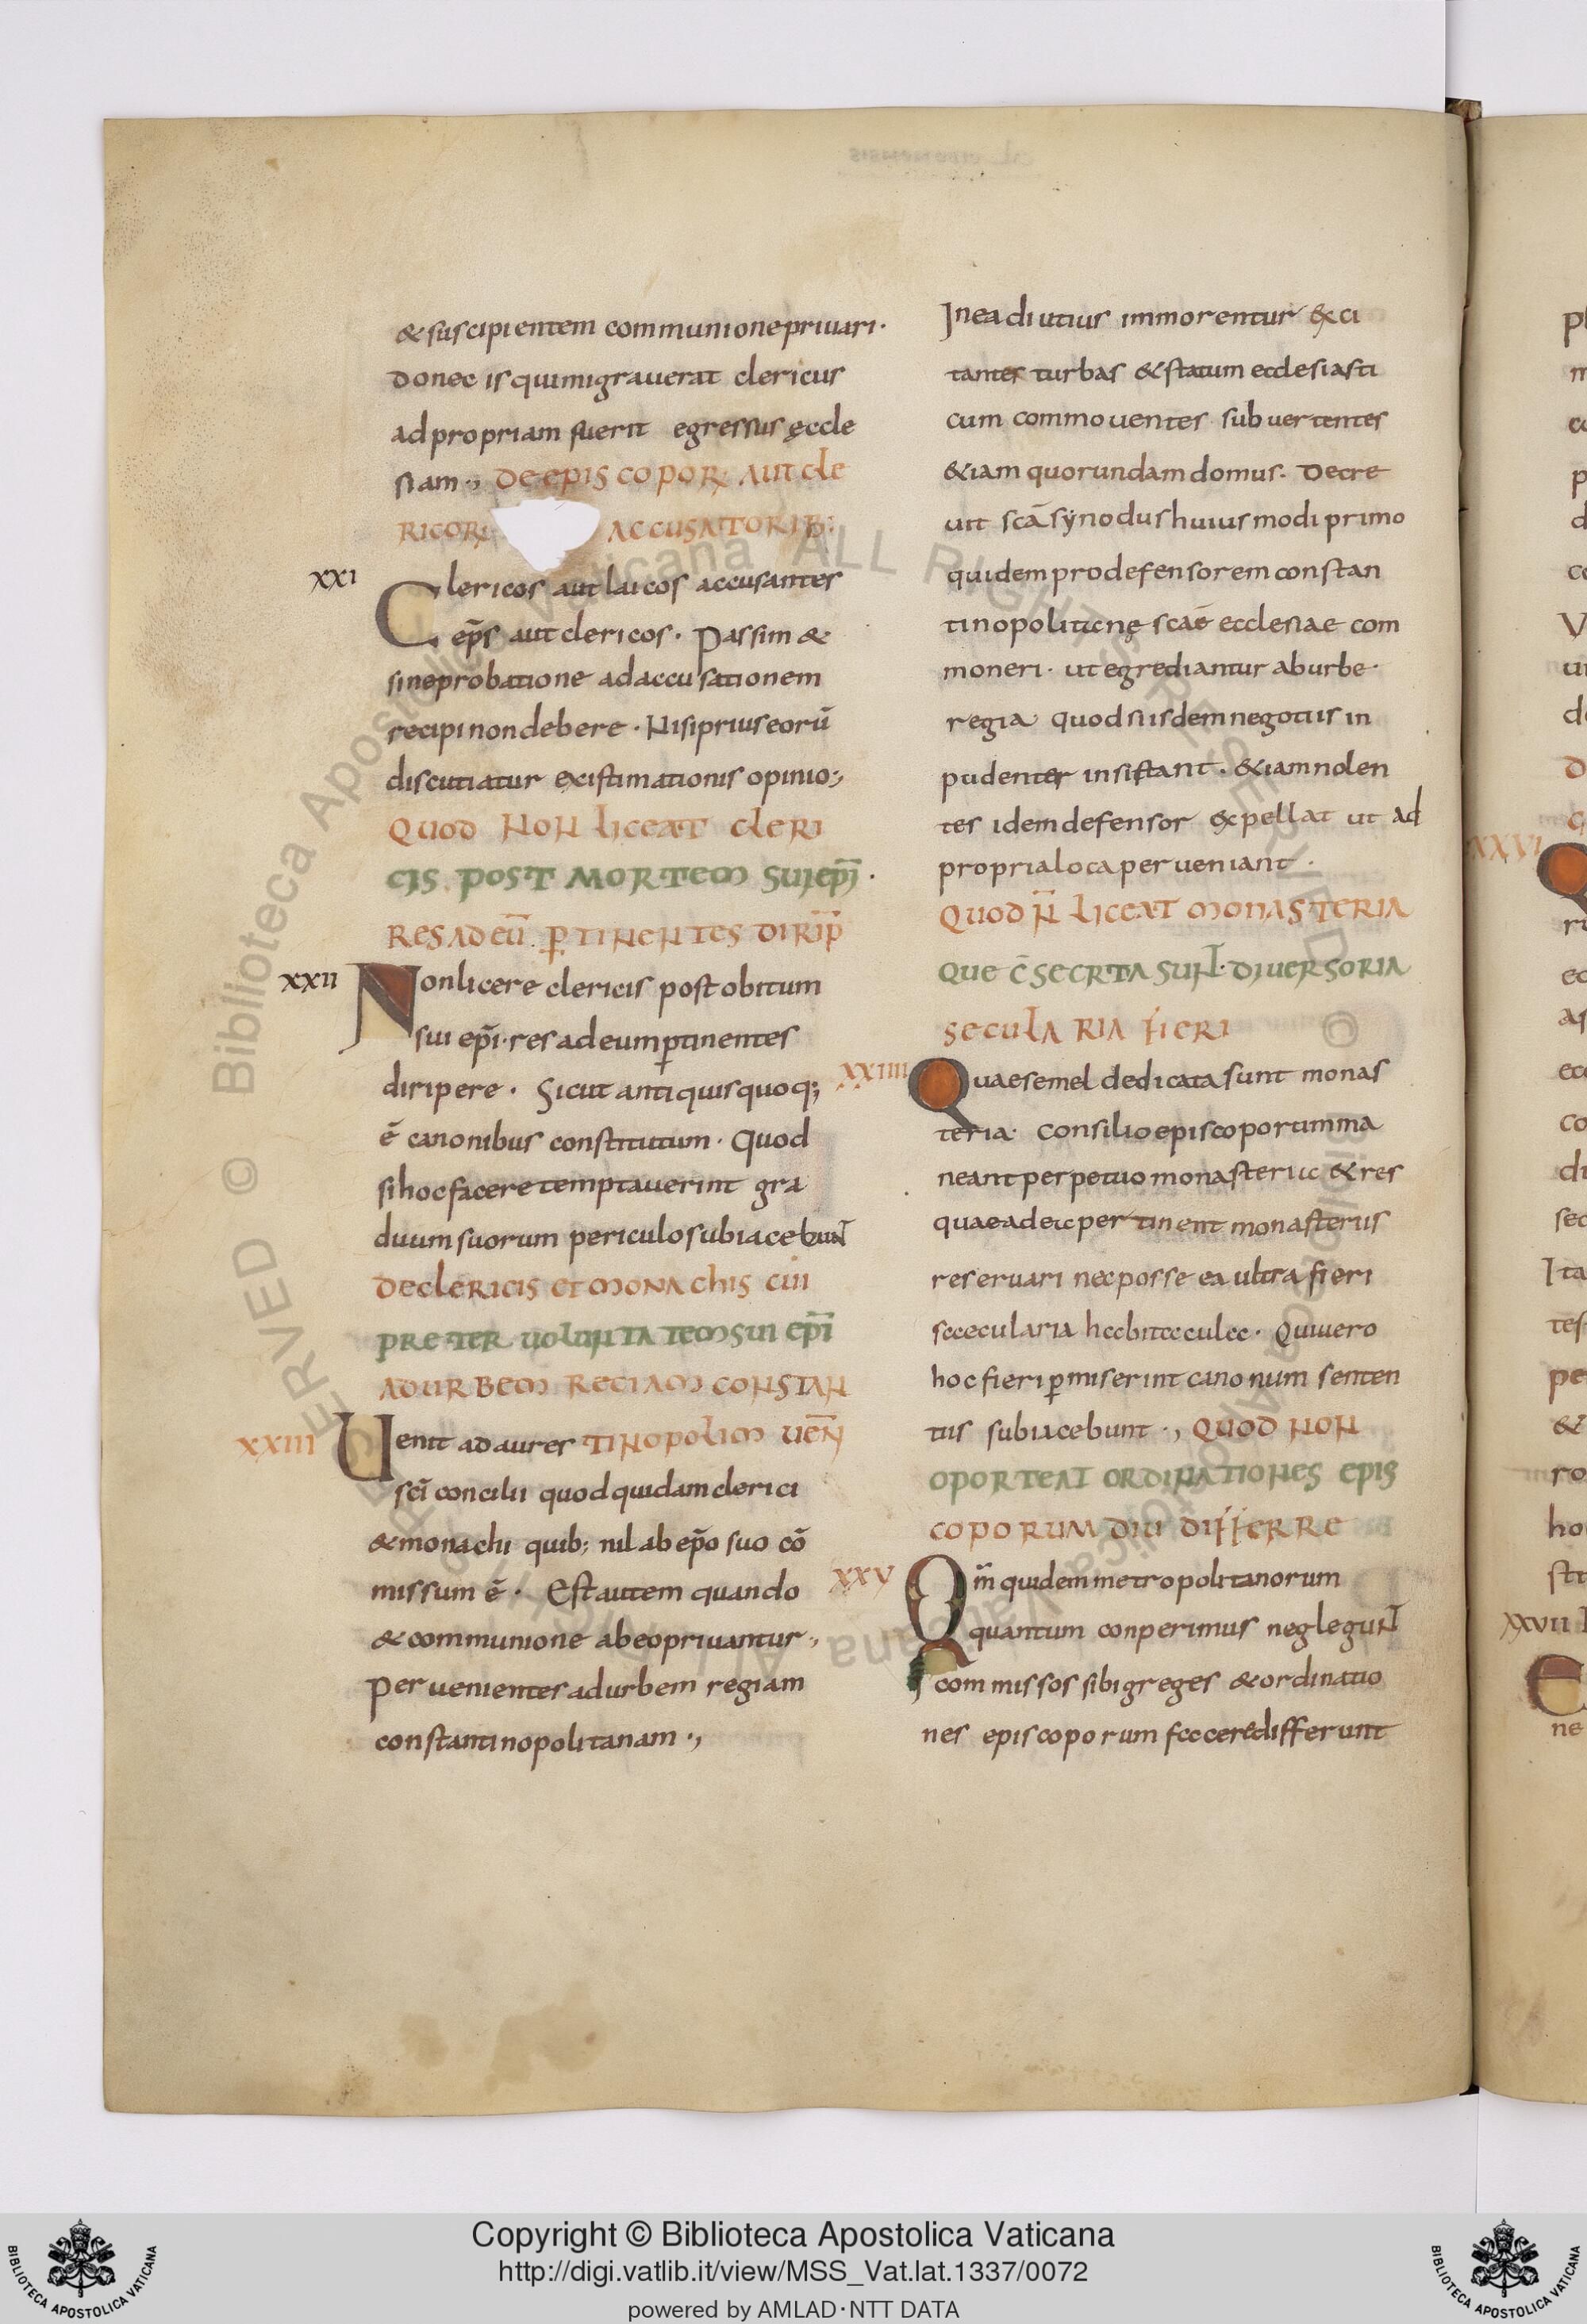 & suscipientem communione priuari·
Donec is qui migrauerat clericus
ad propriam fuerit egressus ęccle
siam·, DE EPISCOPOR· AUT CLE
RICOR· ACCUSATORIB:
XXI
Clericos aut laicos accusantes
ep̄s aut clericos· Passim &
sine probatione ad accusationem
recipi non debere· Nisi prius eorū
discutiatur existimationis opinio;,
QUOD NON LICEAT CLERI
CIS POST MORTEM SUI EPĪ·
RES AD EŪ PTINENTES DIRIP̄
XXII
Non licere clericis post obitum
sui ep̄i· res ad eum ptinentes
diripere· Sicut antiquis quoq;
ē canonibus constitutum· Quod
si hoc facere temptauerint gra
duum suorum periculo subiacebunt
DE CLERICIS ET MONACHIS CUI
PRETER UOLUNTATEM SUI EPĪ
AD URBEM RECIAM CONSTAN
XXIII
Uenit ad aures TINOPOLIM UEN̄
sc̄i concilii quod quidam clerici
& monachi quib; nil ab ep̄o suo cō
missum ē· Est autem quando
& communione ab eo priuantur·,
Peruenientes ad urbem regiam
constantinopolitanam·,
In ea diutius immorentur exci
tantes turbas & statum ecclesiasti
cum commouentes subuertentes
&iam quorundam domus. Decre
uit scā synodus huiusmodi primo
quidem pro defensorem constan
tinopoliticnę scae ecclesiae com
moneri· ut egrediantur ab urbe·
regia quod si isdem negotiis in
pudenter insistant· &iam nolen
tes idem defensor expellat ut ad
propria loca perueniant·
QUOD N̄ LICEAT MONASTERIA
QUE C̄SECRTA SUNT· DIUERSORIA
SECULARIA FIERI
XXIIII
Quae semel dedicata sunt monas
teria· consilio episcoporum ma
neant perpetuo monasteria & res
quae ad ea pertinent monasteriis
reseruari nec posse ea ultra fieri
saecularia habitacula· Qui uero
hoc fieri pmiserint canonum senten
tiis subiacebunt·, QUOD NON
OPORTEAT ORDINATIONES EPIS
COPORUM DIU DIFFERRE
XXV
Qm̄ quidem metropolitanorum
quantum conperimus neglegunt
commissos sibi greges & ordinatio
nes episcoporum facere differunt
Copyright © Biblioteca Apostolica Vaticana
http://digi.vatlib.it/view/MSS_Vat.lat.1337/0072
powered by AMLAD·NTT DATA